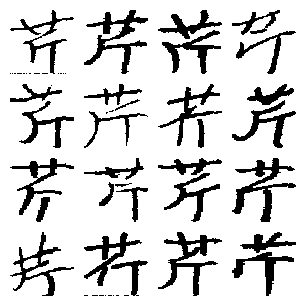 芹芹芹芹
芹芹芹芹
芹芹芹芹
芹芹芹芹